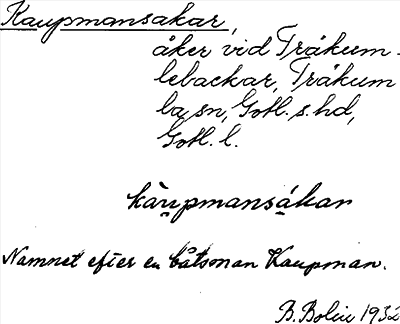 Kaupmansakar,
åker vid Träkum-
lebackar, Träkum
la sn, Gotl. s. hd,
Gotl. l.
kàu̯pmansákar
Namnet efter en båtsman Kaupman.
B. Bolin 1932